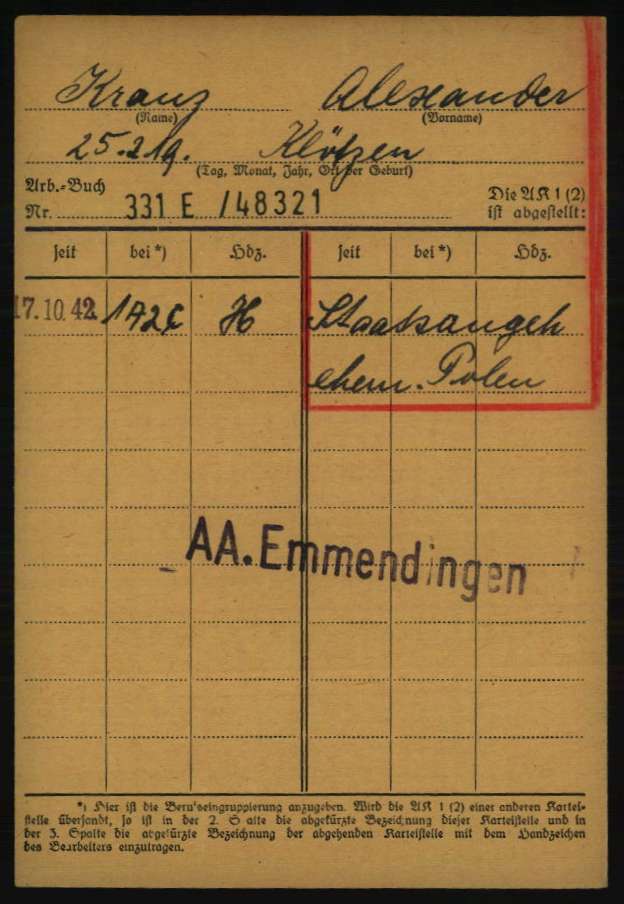 Kranz Alexander
(Name) (Vorname)
25.2.19. Klötzen
(Tag, Monat, Jahr, Ort der Geburt)
Arb.-Buch
Nr. 331 E /48321
Die AK 1 (2)
ist abgestellt:
seit bei *) Hdz. seit bei *) Hdz.
17.10.42. 1A2c H Staatsangeh
ehem. Polen
AA. Emmendingen
*) Hier ist die Berufseingruppierung anzugeben. Wird die AK 1 (2) einer anderen Kartei-
stelle übersandt, so ist in der 2. Spalte die abgekürzte Bezeichnung dieser Karteistelle und in
der 3. Spalte die abgekürzte Bezeichnung der abgehenden Karteistelle mit dem Handzeichen
des Bearbeiters einzutragen.